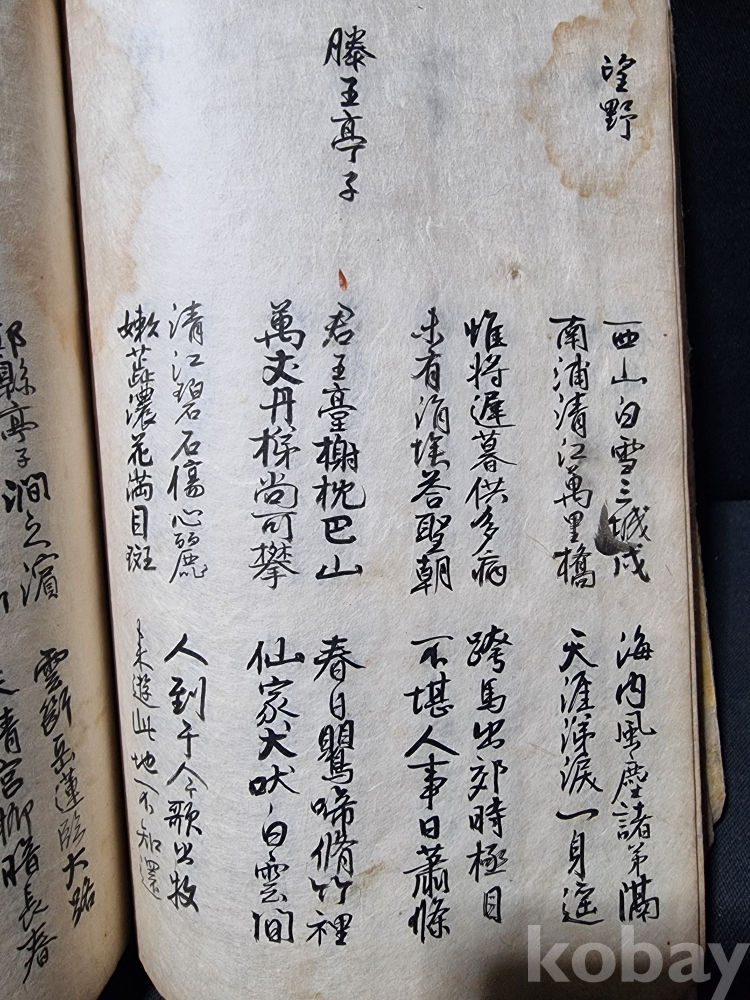 望野
西山白雪三城戍
南浦清江萬里橋
海內風塵諸弟隔
天涯涕淚一身遙
惟將遲暮供多病
未有涓埃答聖朝
跨馬出郊時極目
不堪人事日蕭條
滕王亭子
君王臺榭枕巴山
萬丈丹梯尚可攀
春日鶯啼脩竹裡
仙家犬吠白雲間
清江碧石傷心麗
嫩蕊濃花滿目斑
人到于今歌出牧
來遊此地不知還
縣亭子澗之濱
雲斷岳蓮臨大路
晴宮柳暗長春
kobay